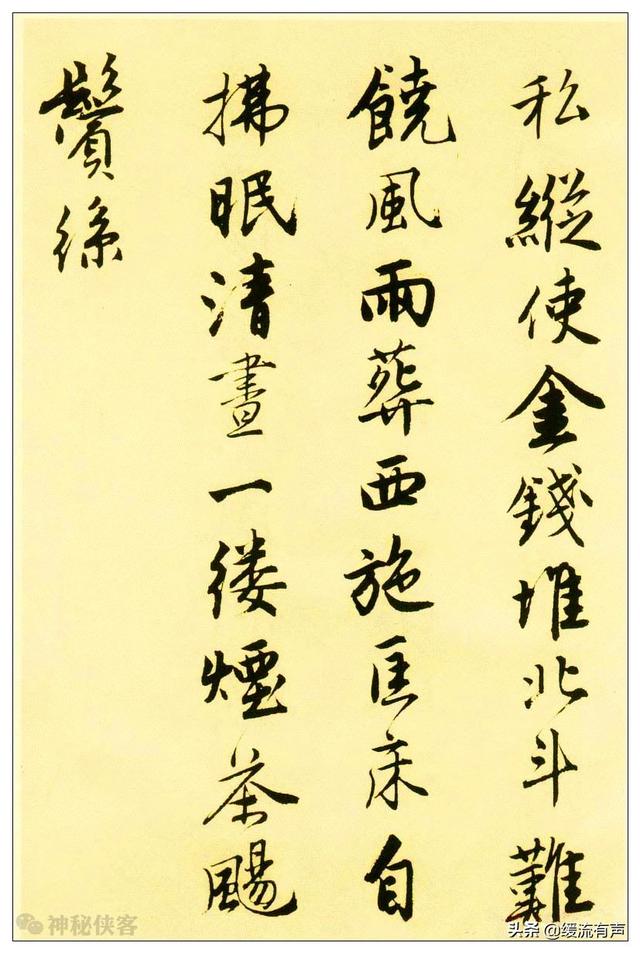 私縱使金錢堆北斗難
饒風雨葬西施匡床自
拂眠清晝一縷煙茶颺
鬢絲
神秘侠客
头条@缓流有声